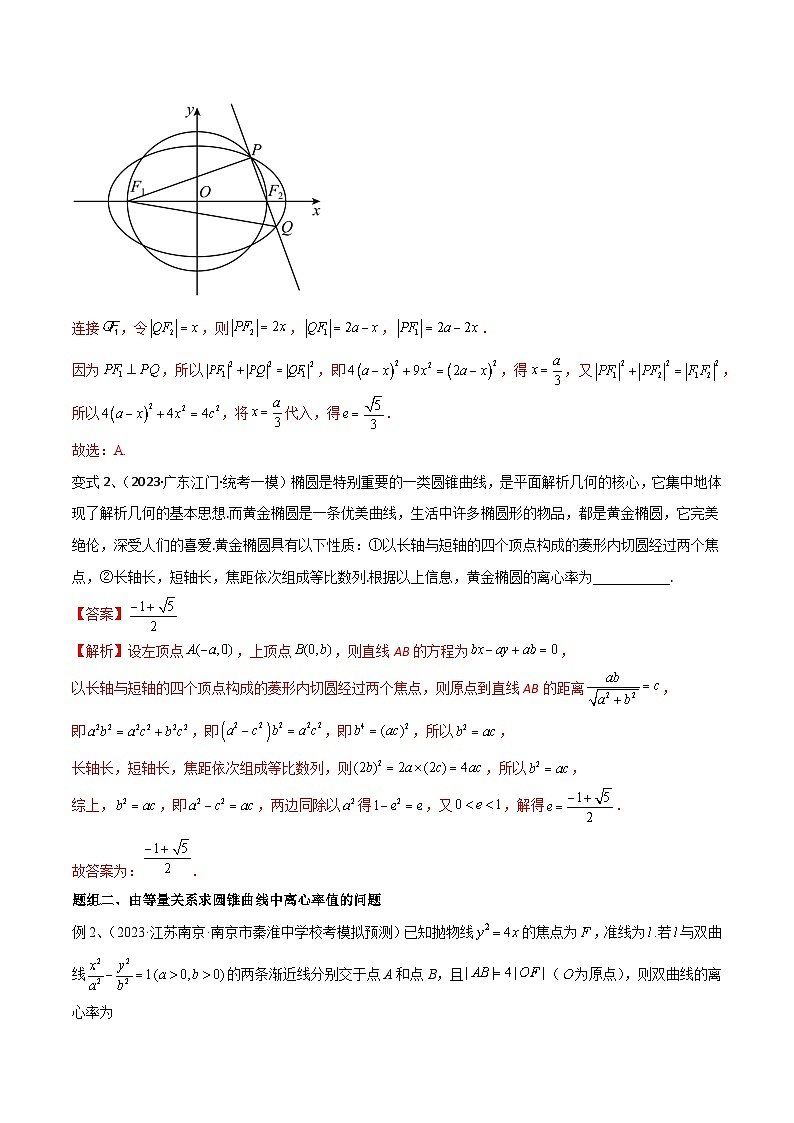 y
P
F₁
O
F₂
x
Q
连接QF₁,令|QF₂|=x,则|PF₂|=2x,|QF₁|=2a-x,|PF₁|=2a-2x.
因为PF₁⊥PQ,所以|PF₁|²+|PQ|²=|QF₁|²,即4(a-x)²+9x²=(2a-x)²,得x=a/3,又|PF₁|²+|PF₂|²=|F₁F₂|²,
所以4(a-x)²+4x²=4c²,将x=a/3代入,得e=√5/3.
故选:A.
变式2、(2023·广东江门·统考一模)椭圆是特别重要的一类圆锥曲线,是平面解析几何的核心,它集中地体
现了解析几何的基本思想.而黄金椭圆是一条优美曲线,生活中许多椭圆形的物品,都是黄金椭圆,它完美
绝伦,深受人们的喜爱.黄金椭圆具有以下性质:①以长轴与短轴的四个顶点构成的菱形内切圆经过两个焦
点,②长轴长,短轴长,焦距依次组成等比数列.根据以上信息,黄金椭圆的离心率为___________.
【答案】(-1+√5)/2
【解析】设左顶点A(-a,0),上顶点B(0,b),则直线AB的方程为bx-ay+ab=0,
以长轴与短轴的四个顶点构成的菱形内切圆经过两个焦点,则原点到直线AB的距离ab/√(a²+b²)=c,
即a²b²=a²c²+b²c²,即(a²-c²)b²=a²c²,即b⁴=(ac)²,所以b²=ac,
长轴长,短轴长,焦距依次组成等比数列,则(2b)²=2a×(2c)=4ac,所以b²=ac,
综上,b²=ac,即a²-c²=ac,两边同除以a²得1-e²=e,又0<e<1,解得e=(-1+√5)/2.
故答案为:(-1+√5)/2.
题组二、由等量关系求圆锥曲线中离心率值的问题
例2、(2023·江苏南京·南京市秦淮中学校考模拟预测)已知抛物线y²=4x的焦点为F,准线为l.若l与双曲
线x²/a²-y²/b²=1(a>0,b>0)的两条渐近线分别交于点A和点B,且|AB|=4|OF|(O为原点),则双曲线的离
心率为